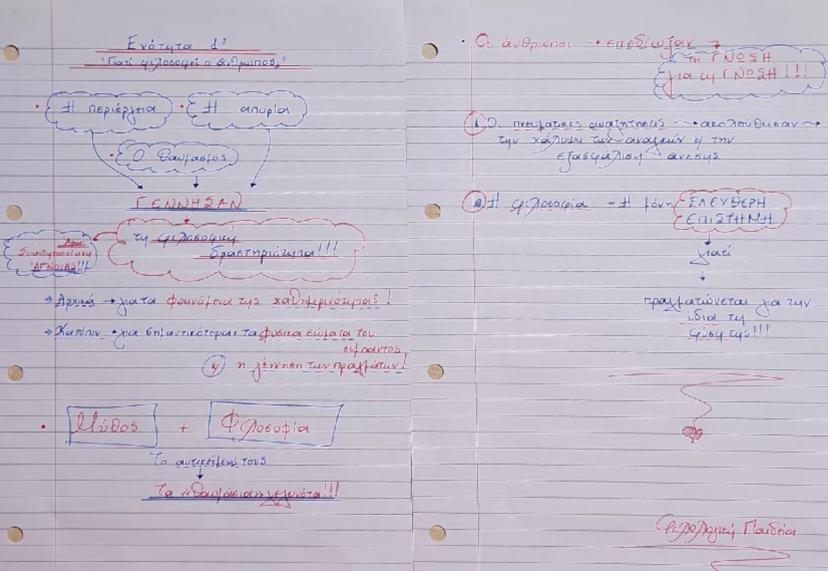 Ενότητα 1η
"Γιατί φιλοσοφεί ο άνθρωπος;"
• Η περιέργεια • Η απορία
• Ο θαυμασμός
ΓΕΝΝΗΣΑΝ
τη φιλοσοφική
δραστηριότητα!!!
Άρα
Συνειδητοποίηση
ΆΓΝΟΙΑΣ!!!
→ Αρχικά → για τα φαινόμενα της καθημερινότητας!
→ Κατόπιν → για σημαντικότερα: τα φυσικά σώματα του
σύμπαντος
ή η γέννηση των πραγμάτων!
• Μύθος + Φιλοσοφία
Το αντικείμενό τους
Τα «θαυμάσια» γεγονότα!!!
• Οι άνθρωποι → επεδίωξαν →
τη ΓΝΩΣΗ
για τη ΓΝΩΣΗ!!!
1 Οι πνευματικές αναζητήσεις → ακολούθησαν →
την κάλυψη των αναγκών ή την
εξασφάλιση άνεσης
2 Η φιλοσοφία - Η μόνη ΕΛΕΥΘΕΡΗ
ΕΠΙΣΤΗΜΗ
γιατί
πραγματώνεται για την
ίδια τη
φύση της!!!
Φιλολογική Παιδεία